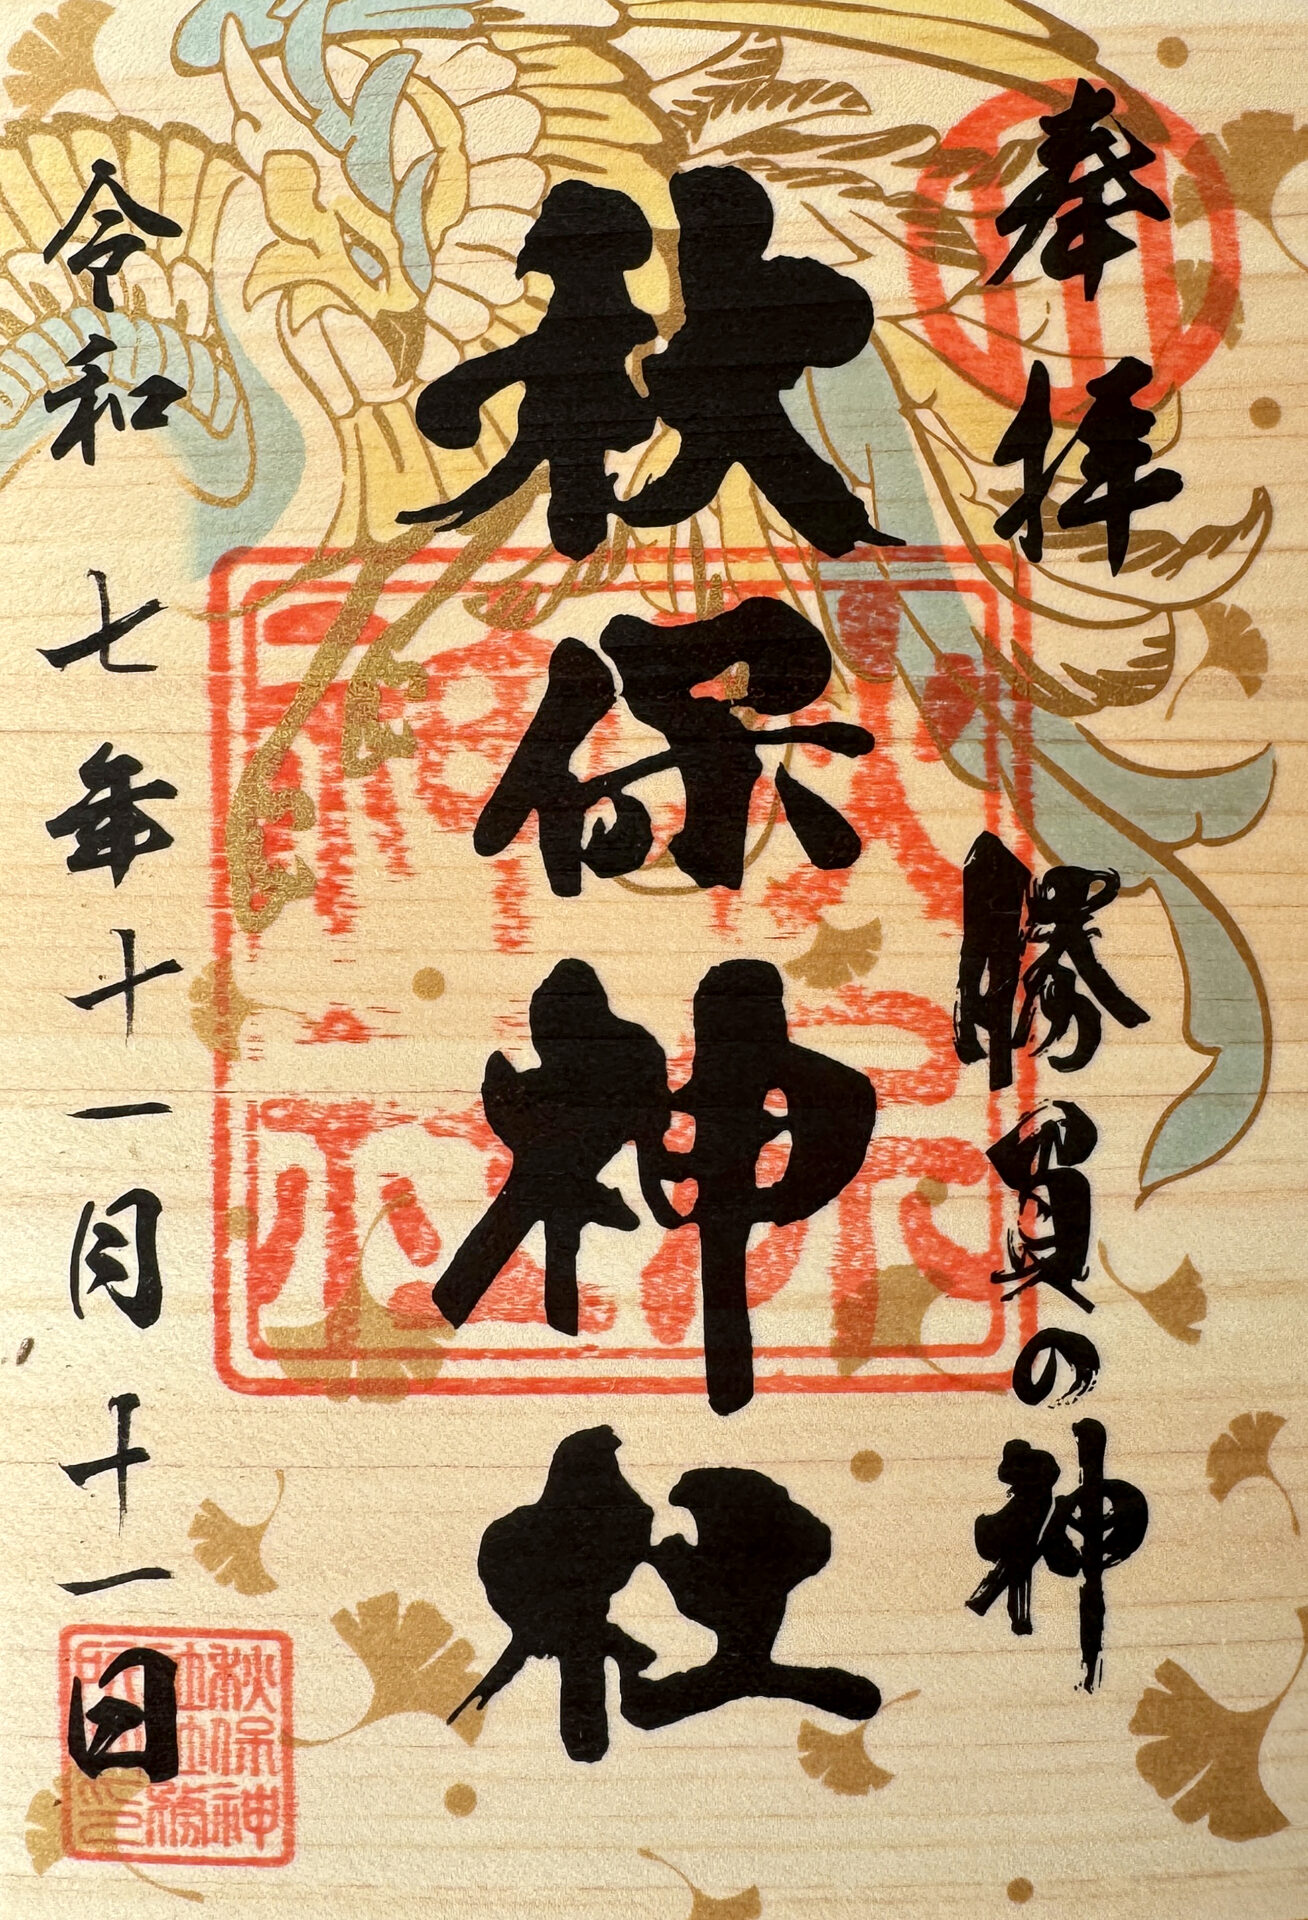 奉拝
勝負の神
秋保神社
令和七年十一月十一日
秋保神社
秋保神社社務所印